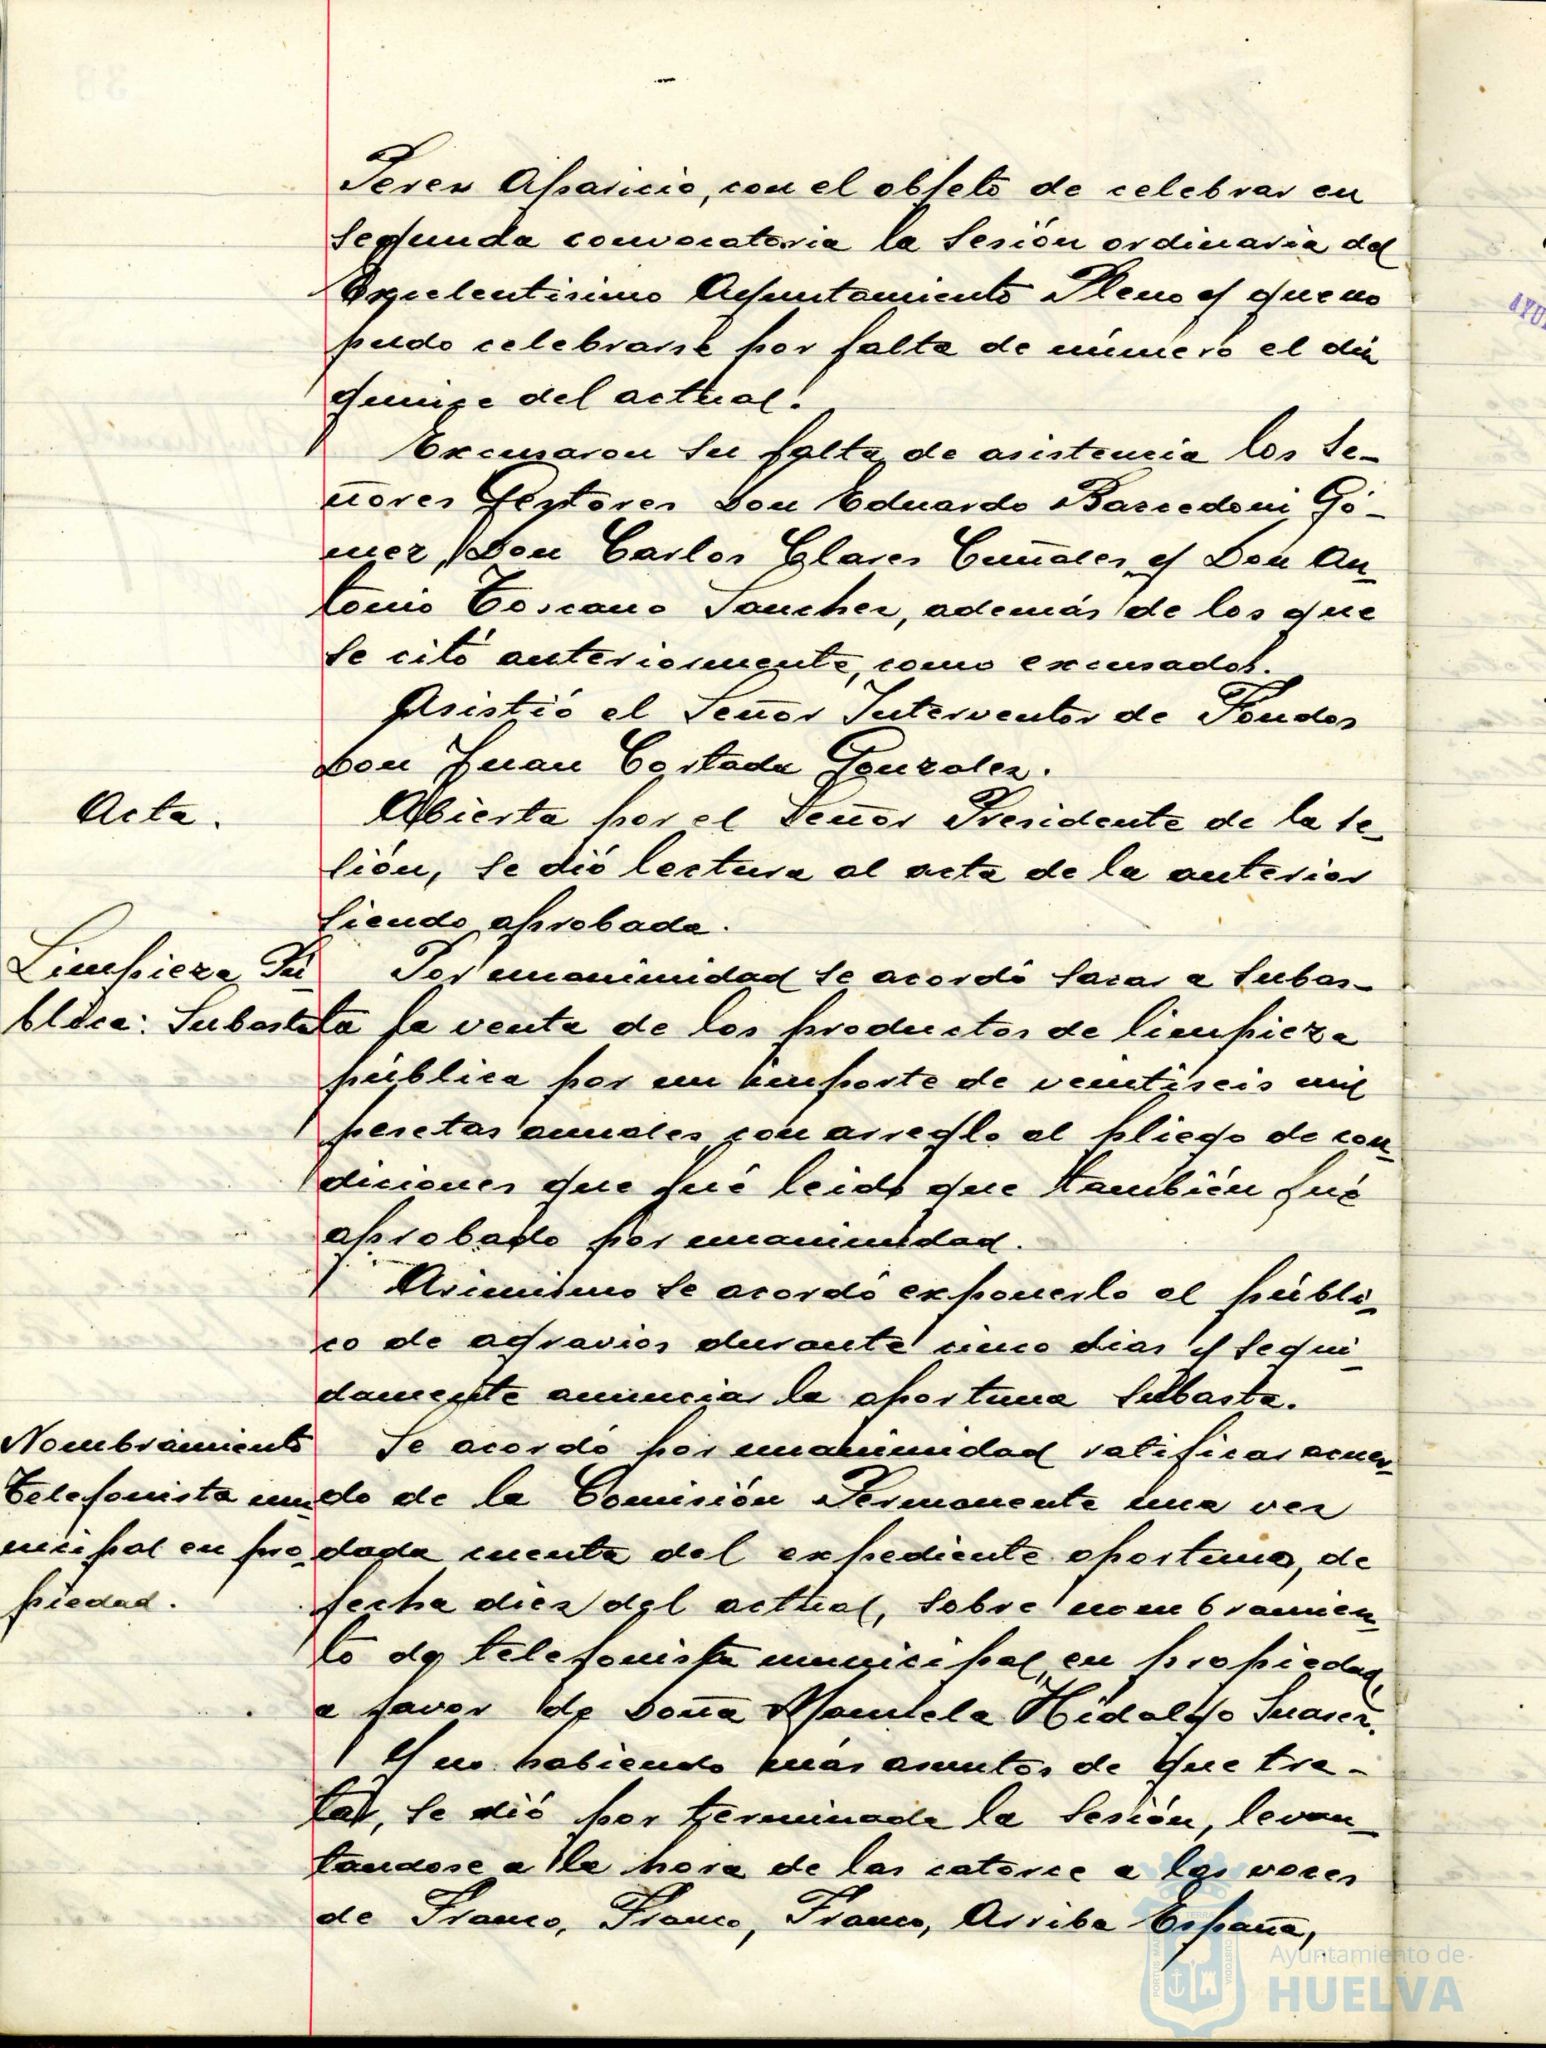 Perez Aparicio, con el objeto de celebrar en
segunda convocatoria la sesión ordinaria del
Excelentisimo Ayuntamiento Pleno y que no
pudo celebrarse por falta de número el dia
quince del actual.
Excusaron su falta de asistencia los Se-
ñores Gestores Don Eduardo Gó-
mez, Don Carlos Clares Cuñales y Don An-
tonio Toscano Sanchez, además de los que
se citó anteriormente, como excusados.
Asistió el Señor Interventor de Fondos
Don Juan Cortada Gonzalez.
Acta.
Abierta por el Señor Presidente de la se-
sión, se dió lectura al acta de la anterior
siendo aprobada.
Limpieza Pú
blica: Subasta
Por unanimidad se acordó sacar a subas-
ta la venta de los productos de limpieza
pública por un importe de veintiseis mil
pesetas anuales con arreglo al pliego de con-
diciones que fué leido que también fué
aprobado por unanimidad.
Asimismo se acordó exponerlo al públi-
co de agravios durante cinco dias y segui-
damente anunciar la oportuna subasta.
Nombramiento
Telefonista mu-
nicipal en pro-
piedad.
Se acordó por unanimidad ratificar acuer-
do de la Comisión Permanente una vez
dada cuenta del expediente oportuno, de
fecha diez del actual, sobre nombramien-
to de telefonista municipal en propiedad
a favor de Doña Manuela Hidalgo Suarez.
Y no habiendo más asuntos de que tra-
tar, se dió por terminada la sesión, levan-
tandose a la hora de las catorce a las voces
de Franco, Franco, Franco, Arriba España,
Ayuntamiento de
HUELVA